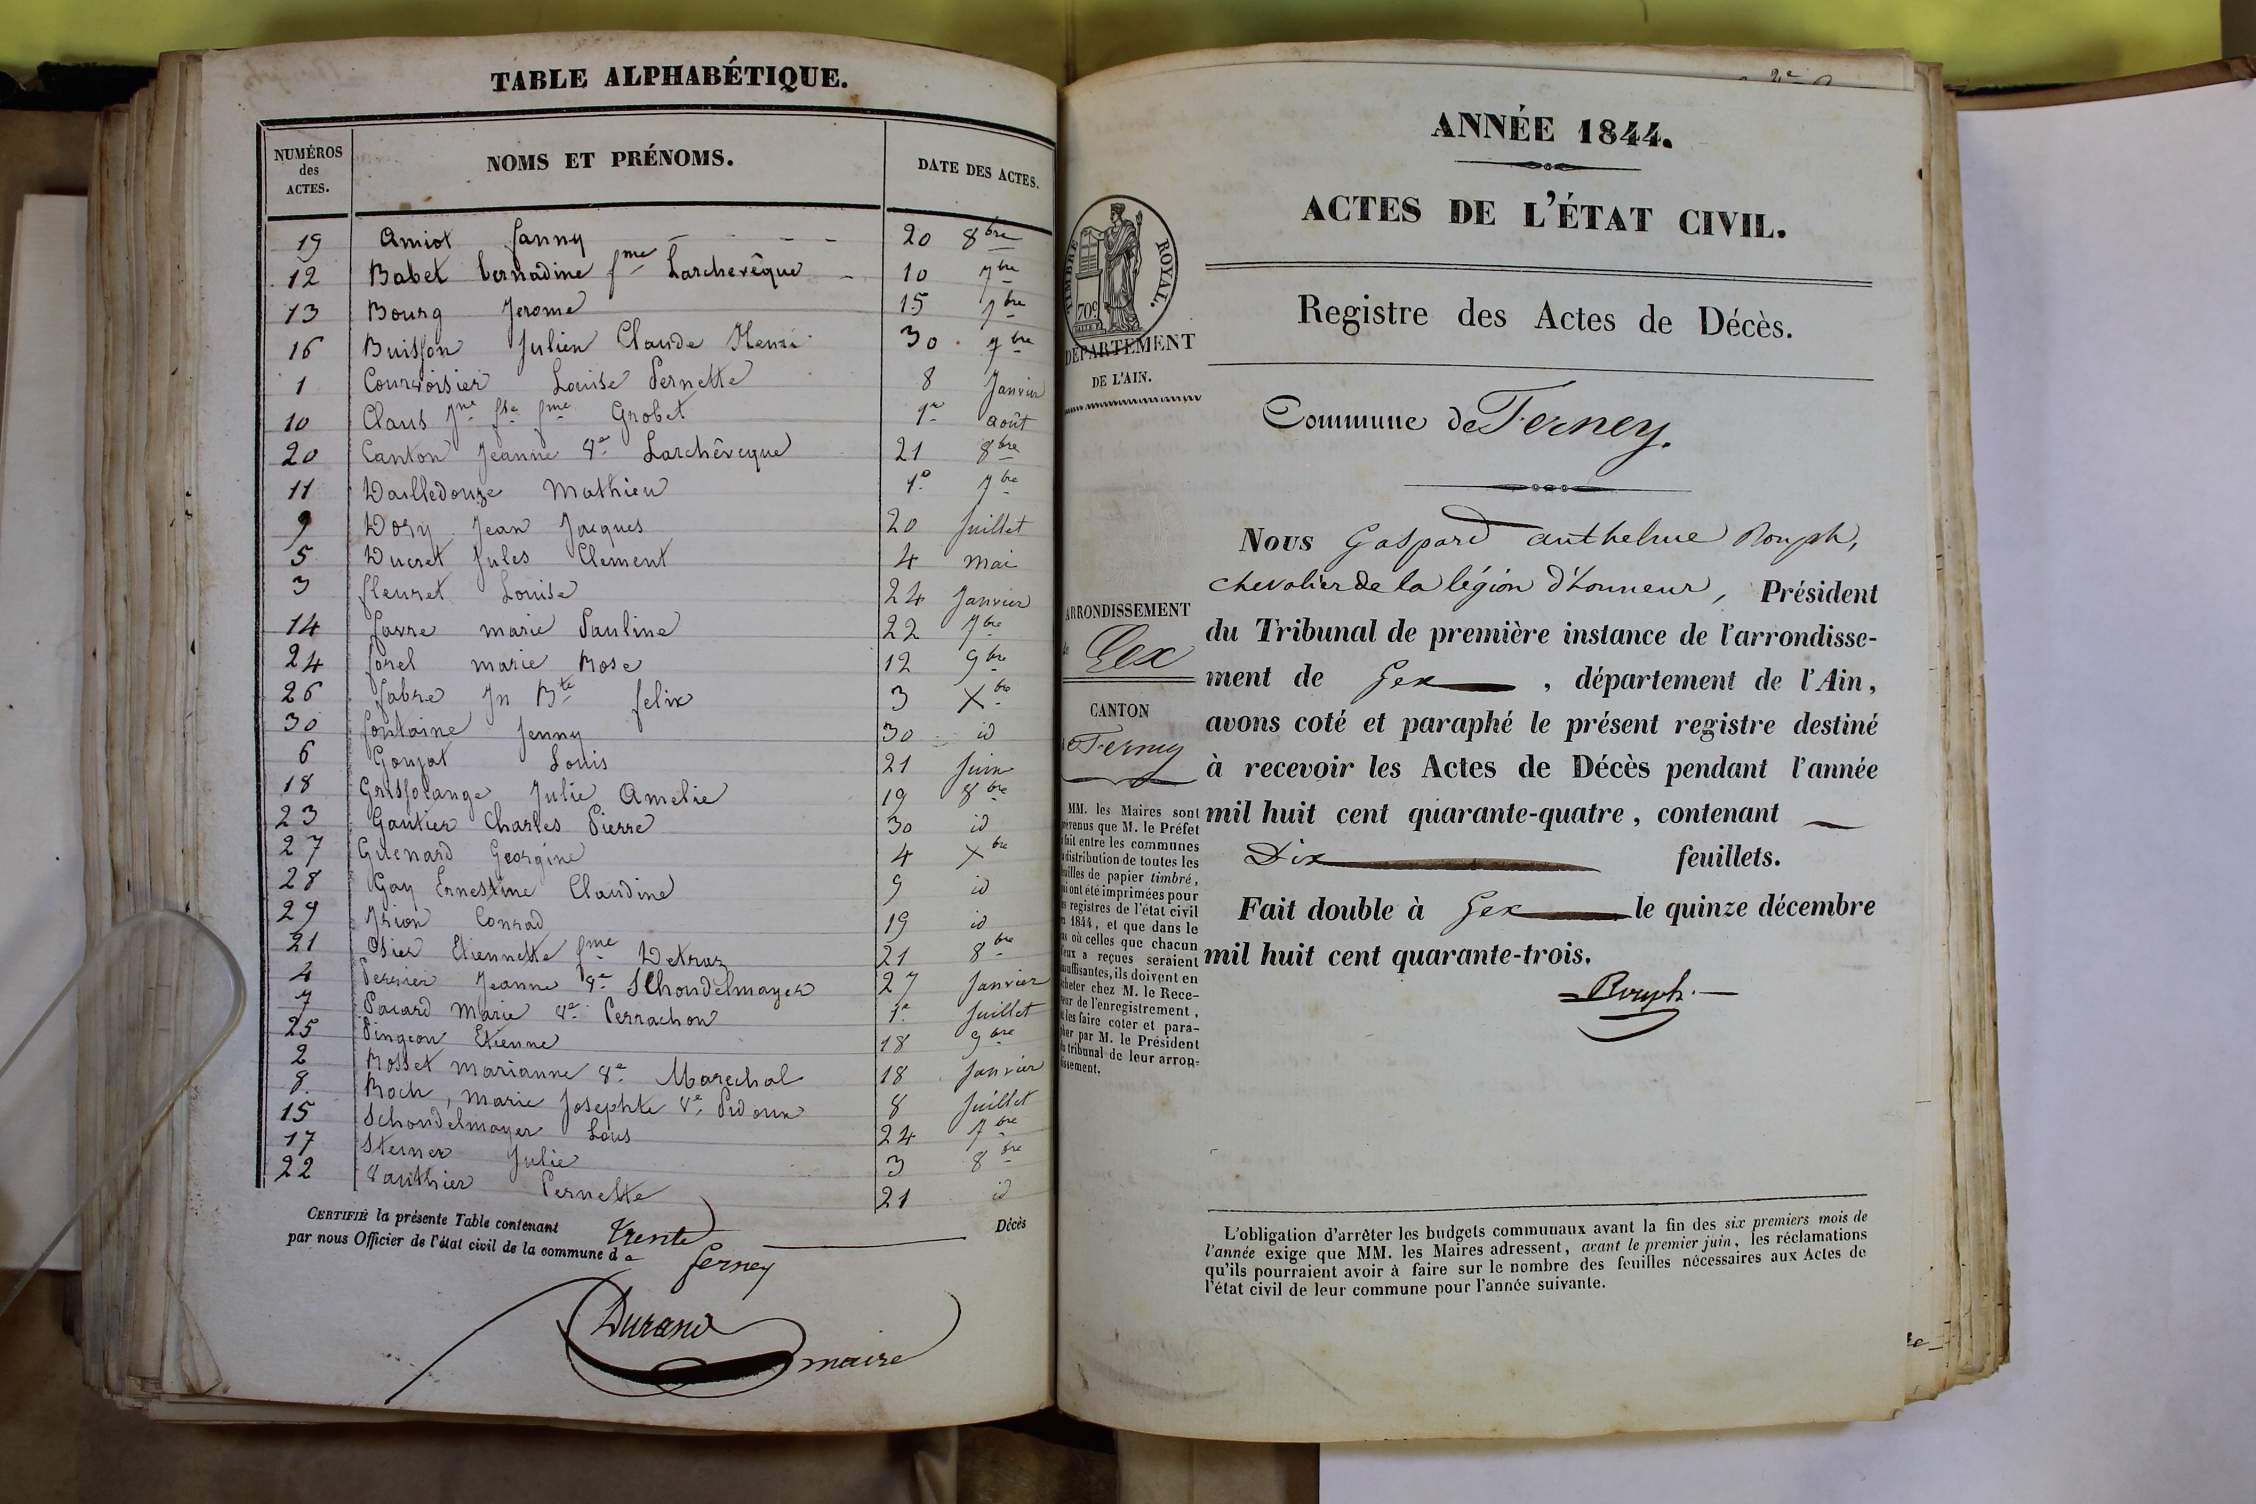 TABLE ALPHABÉTIQUE.
NUMÉROS des ACTES. NOMS ET PRÉNOMS. DATE DES ACTES.
19 Amiot fanny 20 8bre
12 Babet bernadine fme Larchevêque 10 7bre
13 Bourg Jerome 15 7bre
16 Buisson Julien Claude Henri 30 7bre
1 Courvoisier Louise Pernette 8 Janvier
10 Claus Jne fse fme Grobet 1er août
20 Canton Jeanne Ve Larchêveque 21 8bre
11 Dailledouze Mathieu 1er 7bre
9 Dory Jean Jacques 20 Juillet
5 Ducret Jules Clement 4 mai
3 fleuret Louise 24 Janvier
14 favre marie Pauline 22 7bre
24 forel marie Rose 12 9bre
26 fabre Jn Bte felix 3 Xbre
30 fontaine Jenny 30 id
6 Goujat Louis 21 Juin
18 Julie Amelie 19 8bre
23 Gautier Charles Pierre 30 id
27 Guenard Georgine 4 Xbre
28 Gay Ernestine Claudine 9 id
29 Irion Conrad 19 id
21 Osier Etiennette fme Detraz 21 8bre
4 Perrier Jeanne Ve Schoudelmayer 27 Janvier
7 Pacard Marie Ve Perrachon 1er Juillet
25 Pingeon Etienne 18 9bre
2 Rosset marianne Ve Marechal 18 Janvier
8 Roch, marie Josephte Ve Pidoux 8 Juillet
15 Schoudelmayer Lous 24 7bre
17 Steiner Julie 3 8bre
22 Vauthier Pernette 21 id
CERTIFIÉ la présente Table contenant trente Décès
par nous Officier de l'état civil de la commune de ferney
Durand maire
ANNÉE 1844.
ACTES DE L'ÉTAT CIVIL.
TIMBRE ROYAL.
70c
DÉPARTEMENT
DE L'AIN.
Registre des Actes de Décès.
Commune de Ferney.
Nous Gaspard anthelme Rouph,
chevalier de la légion d'honneur, Président
du Tribunal de première instance de l'arrondisse-
ment de Gex, département de l'Ain,
avons coté et paraphé le présent registre destiné
à recevoir les Actes de Décès pendant l'année
mil huit cent quarante-quatre, contenant
Dix feuillets.
Fait double à Gex le quinze décembre
mil huit cent quarante-trois.
Rouph.
ARRONDISSEMENT
Gex
CANTON
Ferney
MM. les Maires sont
prévenus que M. le Préfet
a fait entre les communes
la distribution de toutes les
feuilles de papier timbré,
qui ont été imprimées pour
les registres de l'état civil
en 1844, et que dans le
cas où celles que chacun
d'eux a reçues seraient
insuffisantes, ils doivent en
acheter chez M. le Rece-
veur de l'enregistrement,
et les faire coter et para-
pher par M. le Président
du tribunal de leur arron-
dissement.
L'obligation d'arrêter les budgets communaux avant la fin des six premiers mois de
l'année exige que MM. les Maires adressent, avant le premier juin, les réclamations
qu'ils pourraient avoir à faire sur le nombre des feuilles nécessaires aux Actes de
l'état civil de leur commune pour l'année suivante.